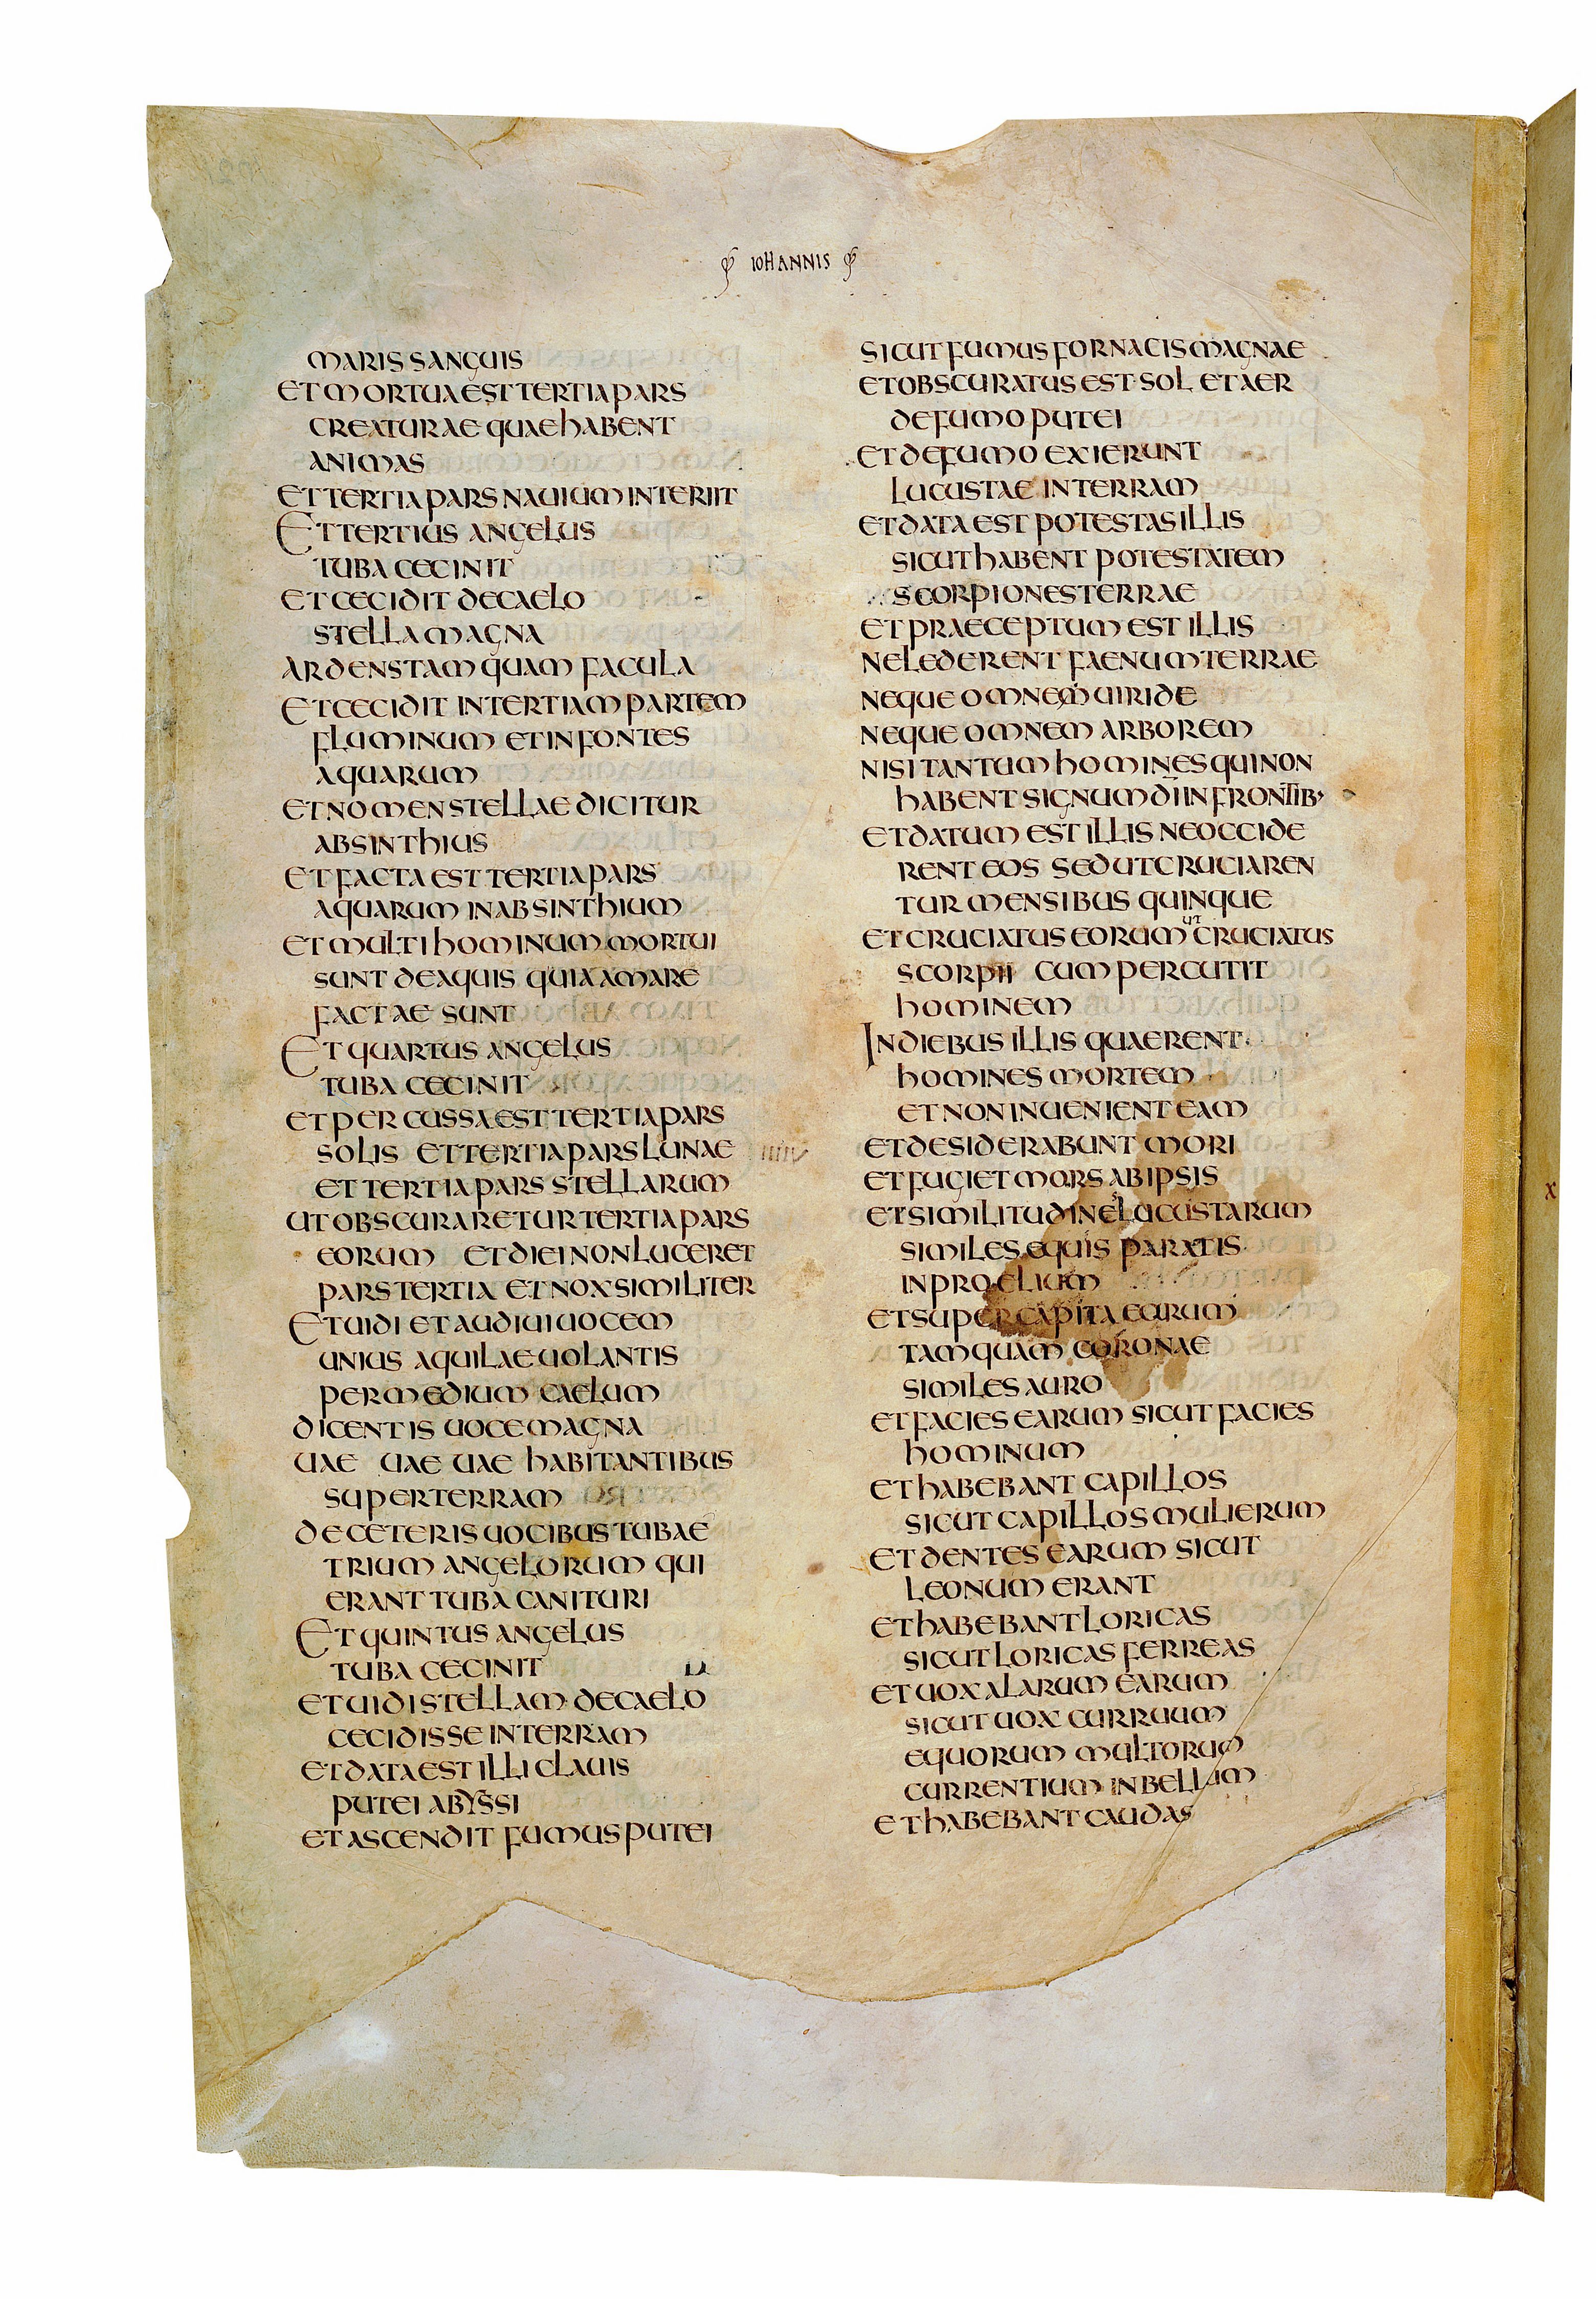 IOHANNIS
MARIS SANGUIS
ET MORTUA EST TERTIA PARS
CREATURAE QUAE HABENT
ANIMAS
ET TERTIA PARS NAUIUM INTERIIT
ET TERTIUS ANGELUS
TUBA CECINIT
ET CECIDIT DE CAELO
STELLA MAGNA
ARDENS TAMQUAM FACULA
ET CECIDIT IN TERTIAM PARTEM
FLUMINUM ET IN FONTES
AQUARUM
ET NOMEN STELLAE DICITUR
ABSINTHIUS
ET FACTA EST TERTIA PARS
AQUARUM IN ABSINTHIUM
ET MULTI HOMINUM MORTUI
SUNT DE AQUIS QUIA AMARE
FACTAE SUNT
ET QUARTUS ANGELUS
TUBA CECINIT
ET PERCUSSA EST TERTIA PARS
SOLIS ET TERTIA PARS LUNAE
ET TERTIA PARS STELLARUM
UT OBSCURARETUR TERTIA PARS
EORUM ET DIEI NON LUCERET
PARS TERTIA ET NOX SIMILITER
ET UIDI ET AUDIUI UOCEM
UNIUS AQUILAE UOLANTIS
PER MEDIUM CAELUM
DICENTIS UOCE MAGNA
UAE UAE UAE HABITANTIBUS
SUPER TERRAM
DE CETERIS UOCIBUS TUBAE
TRIUM ANGELORUM QUI
ERANT TUBA CANITURI
ET QUINTUS ANGELUS
TUBA CECINIT
ET UIDI STELLAM DE CAELO
CECIDISSE IN TERRAM
ET DATA EST ILLI CLAUIS
PUTEI ABYSSI
ET ASCENDIT FUMUS PUTEI
SICUT FUMUS FORNACIS MAGNAE
ET OBSCURATUS EST SOL ET AER
DE FUMO PUTEI
ET DE FUMO EXIERUNT
LUCUSTAE IN TERRAM
ET DATA EST POTESTAS ILLIS
SICUT HABENT POTESTATEM
SCORPIONES TERRAE
ET PRAECEPTUM EST ILLIS
NE LEDERENT FAENUM TERRAE
NEQUE OMNEM UIRIDE
NEQUE OMNEM ARBOREM
NISI TANTUM HOMINES QUI NON
HABENT SIGNUM DI IN FRONTIB
ET DATUM EST ILLIS NE OCCIDE
RENT EOS SED UT CRUCIAREN
TUR MENSIBUS QUINQUE
ET CRUCIATUS EORUM UT CRUCIATUS
SCORPII CUM PERCUTIT
HOMINEM
IN DIEBUS ILLIS QUAERENT
HOMINES MORTEM
ET NON INUENIENT EAM
ET DESIDERABUNT MORI
ET FUGIET MORS AB IPSIS
ET SIMILITUDINES LUCUSTARUM
SIMILES EQUIS PARATIS
IN PROELIUM
ET SUPER CAPITA EARUM
TAMQUAM CORONAE
SIMILES AURO
ET FACIES EARUM SICUT FACIES
HOMINUM
ET HABEBANT CAPILLOS
SICUT CAPILLOS MULIERUM
ET DENTES EARUM SICUT
LEONUM ERANT
ET HABEBANT LORICAS
SICUT LORICAS FERREAS
ET UOX ALARUM EARUM
SICUT UOX CURRUUM
EQUORUM MULTORUM
CURRENTIUM IN BELLUM
ET HABEBANT CAUDAS